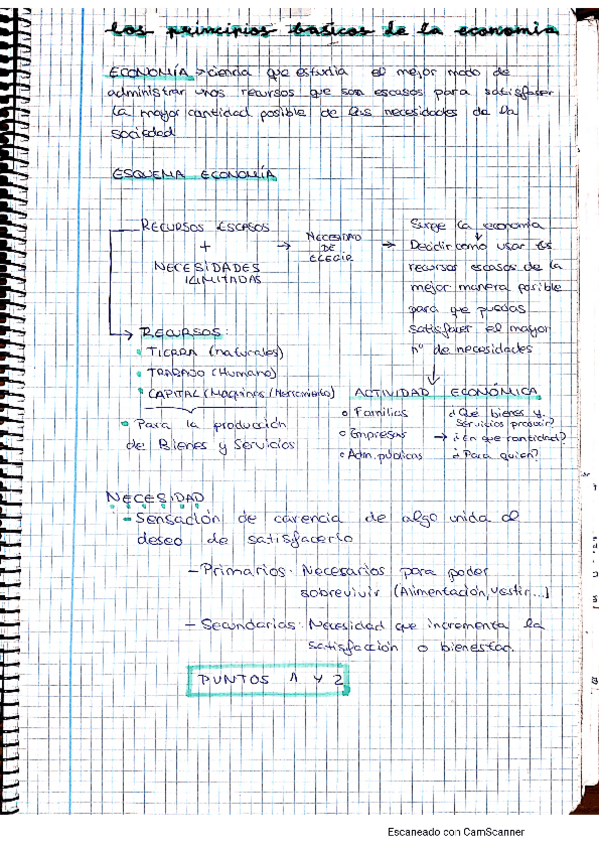 Los principios basicos de la economia
ECONOMÍA → ciencia que estudia el mejor modo de
administrar unos recursos que son escasos para satisfacer
la mayor cantidad posible de las necesidades de la
sociedad
ESQUEMA ECONOMÍA
RECURSOS ESCASOS
+
NECESIDADES
ILIMITADAS
→ NECESIDAD
DE
ELEGIR
→ Surge la economía
Decidir como usar los
recursos escasos de la
mejor manera posible
para que puedas
satisfacer el mayor
nº de necesidades
RECURSOS:
• TIERRA (naturales)
• TRABAJO (Humano)
• CAPITAL (Maquinas/Herramienta)
• Para la producción
de Bienes y Servicios
ACTIVIDAD ECONÓMICA
o Familias
o Empresas
o Adm. públicas
→ ¿Qué bienes y
Servicios producir?
¿En que cantidad?
¿Para quien?
NECESIDAD
- Sensación de carencia de algo unida al
deseo de satisfacerlo
- Primarios: Necesarios para poder
sobrevivir (Alimentación, vestir...)
- Secundarias: Necesidad que incrementa la
satisfacción o bienestar.
PUNTOS 1 Y 2
Escaneado con CamScanner